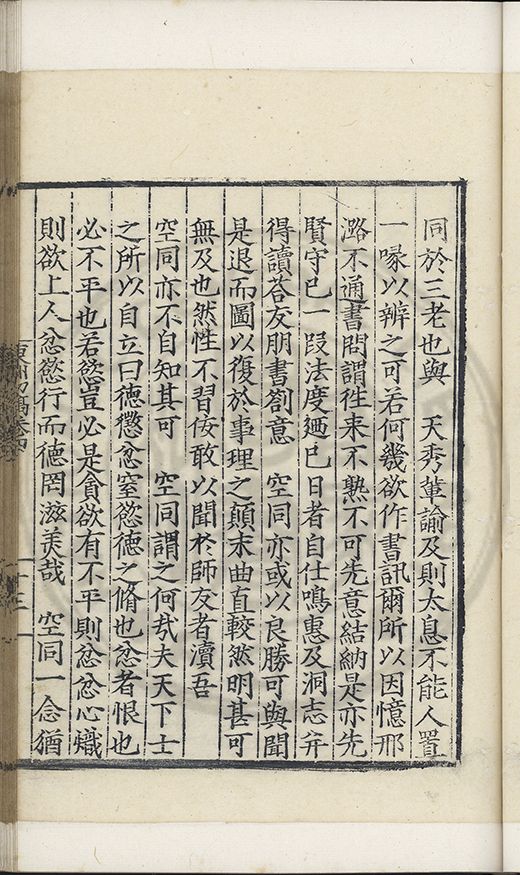 同於三老也與　天秀輩諭及則太息不能人置
一喙以辨之可若何幾欲作書訊爾所以因憶邢
潞不通書問謂徃来不熟不可先意結納是亦先
賢守已一叚法度廼已日者自仕鳴惠及洞志弁
得讀荅友朋書劄意　空同亦或以良勝可與聞
是退而圖以復於事理之顛末曲直較然明甚可
無及也然性不習侫敢以聞於師友者瀆吾
空同亦不自知其可　空同謂之何㢤夫天下士
之所以自立曰德懲忿窒慾德之脩也忿者恨也
必不平也若慾豈必是貪欲有不平則忿忿心熾
則欲上人忿慾行而德罔滋美哉　空同一念猶